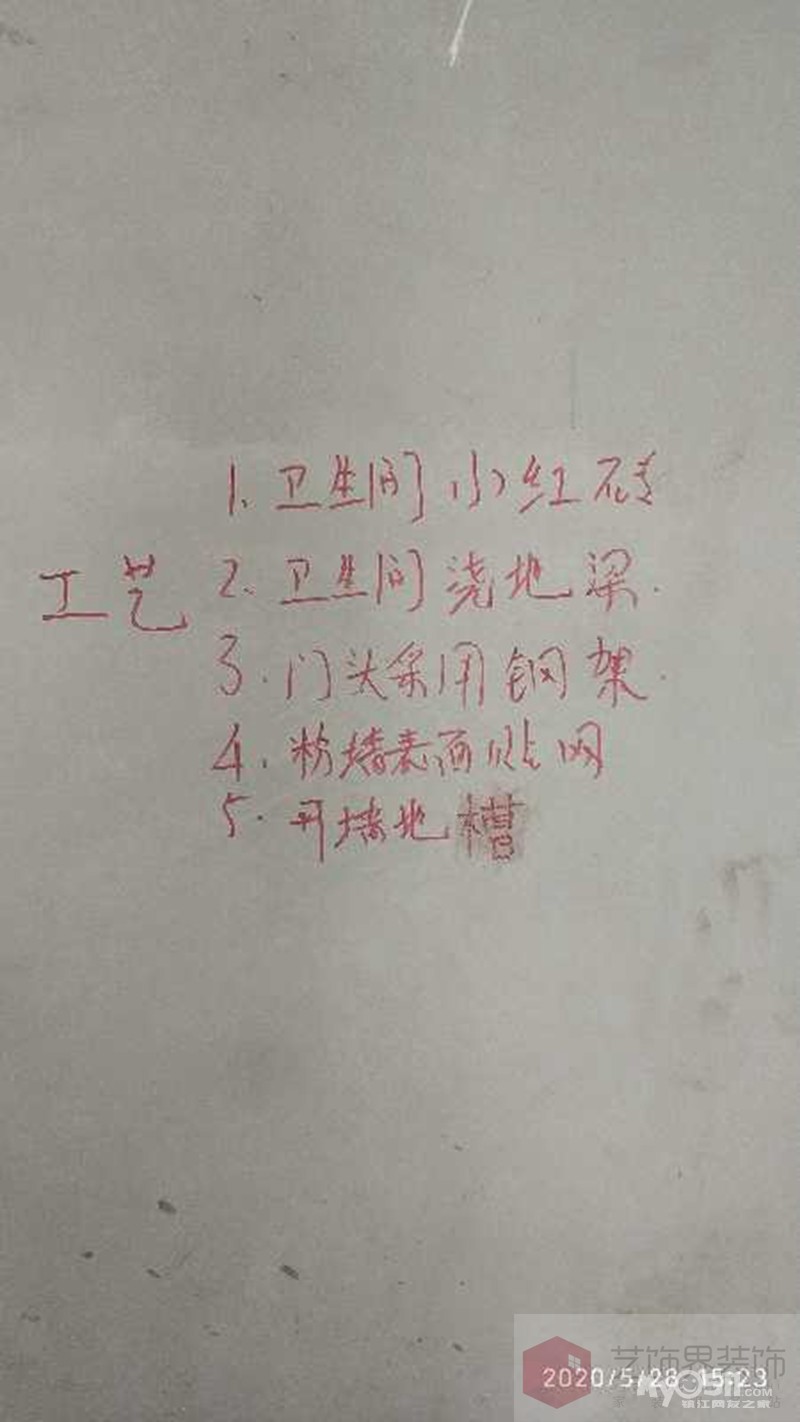 1. 卫生间小红砖
工艺 2. 卫生间浇地梁.
3. 门头采用钢架.
4. 粉墙表面贴网
5. 开墙地槽
艺饰界装饰
2020/5/28 15:23
kyo511.com
镇江网友之家